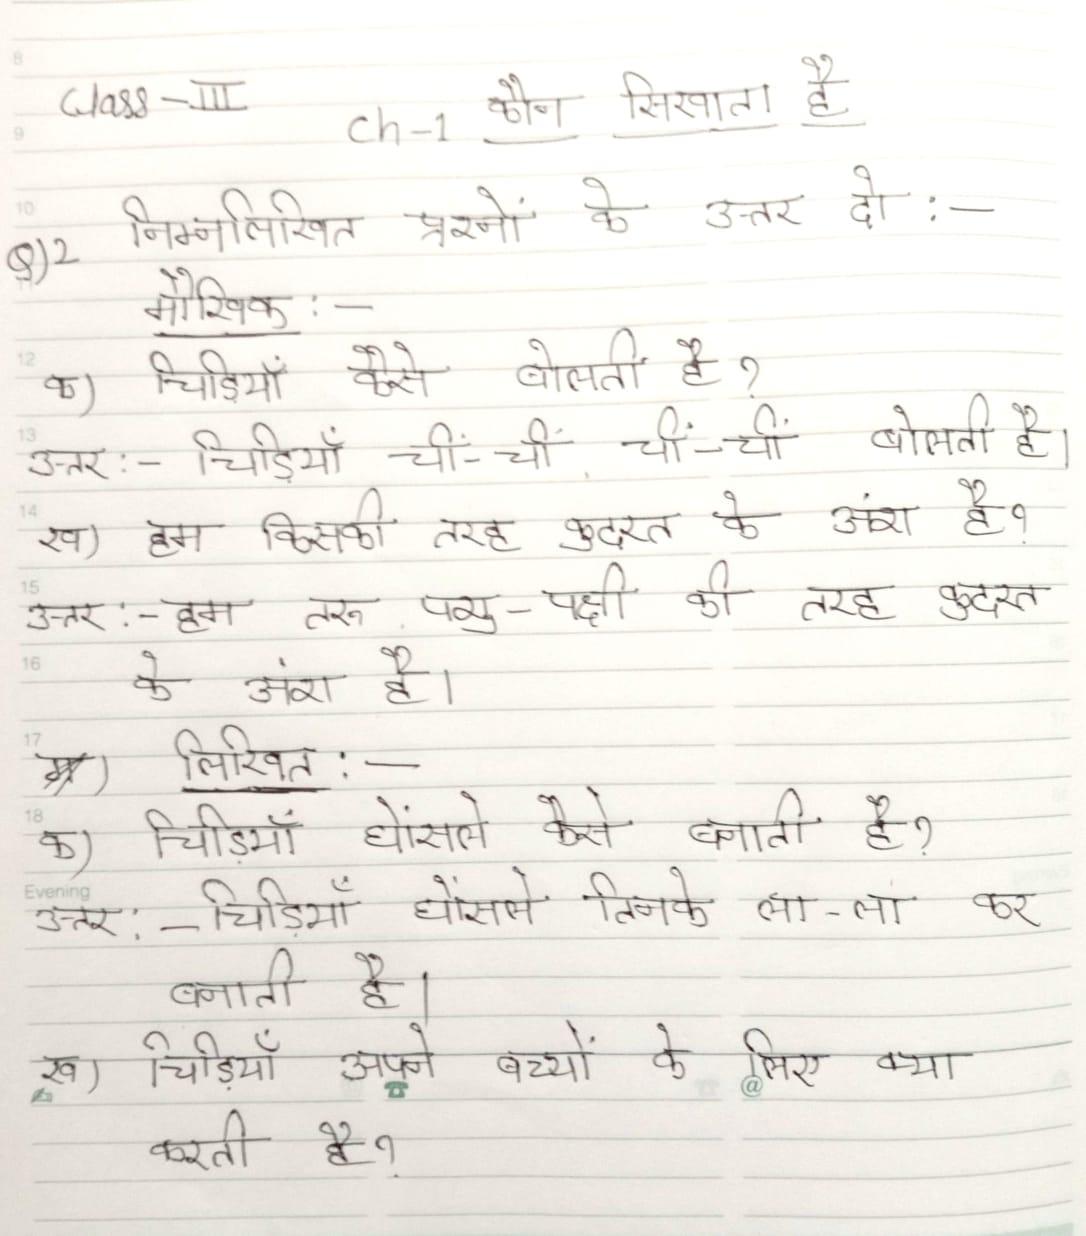 Class - III
Ch-1 कौन सिखाता है
Q)2 निम्नलिखित प्रश्नों के उत्तर दो :-
मौखिक :-
क) चिड़ियाँ कैसे बोलती है ?
उत्तर :- चिड़ियाँ चीं-चीं चीं-चीं बोलती है।
ख) हम किसकी तरह कुदरत के अंश है ?
उत्तर :- हम तरु पशु-पक्षी की तरह कुदरत
के अंश है।
लिखित :-
क) चिड़ियाँ घोंसले कैसे बनाती है ?
उत्तर :- चिड़ियाँ घोंसले तिनके ला-ला कर
बनाती है।
ख) चिड़ियाँ अपने बच्चों के लिए क्या
करती है ?
8
9
10
11
12
13
14
15
16
17
18
Evening